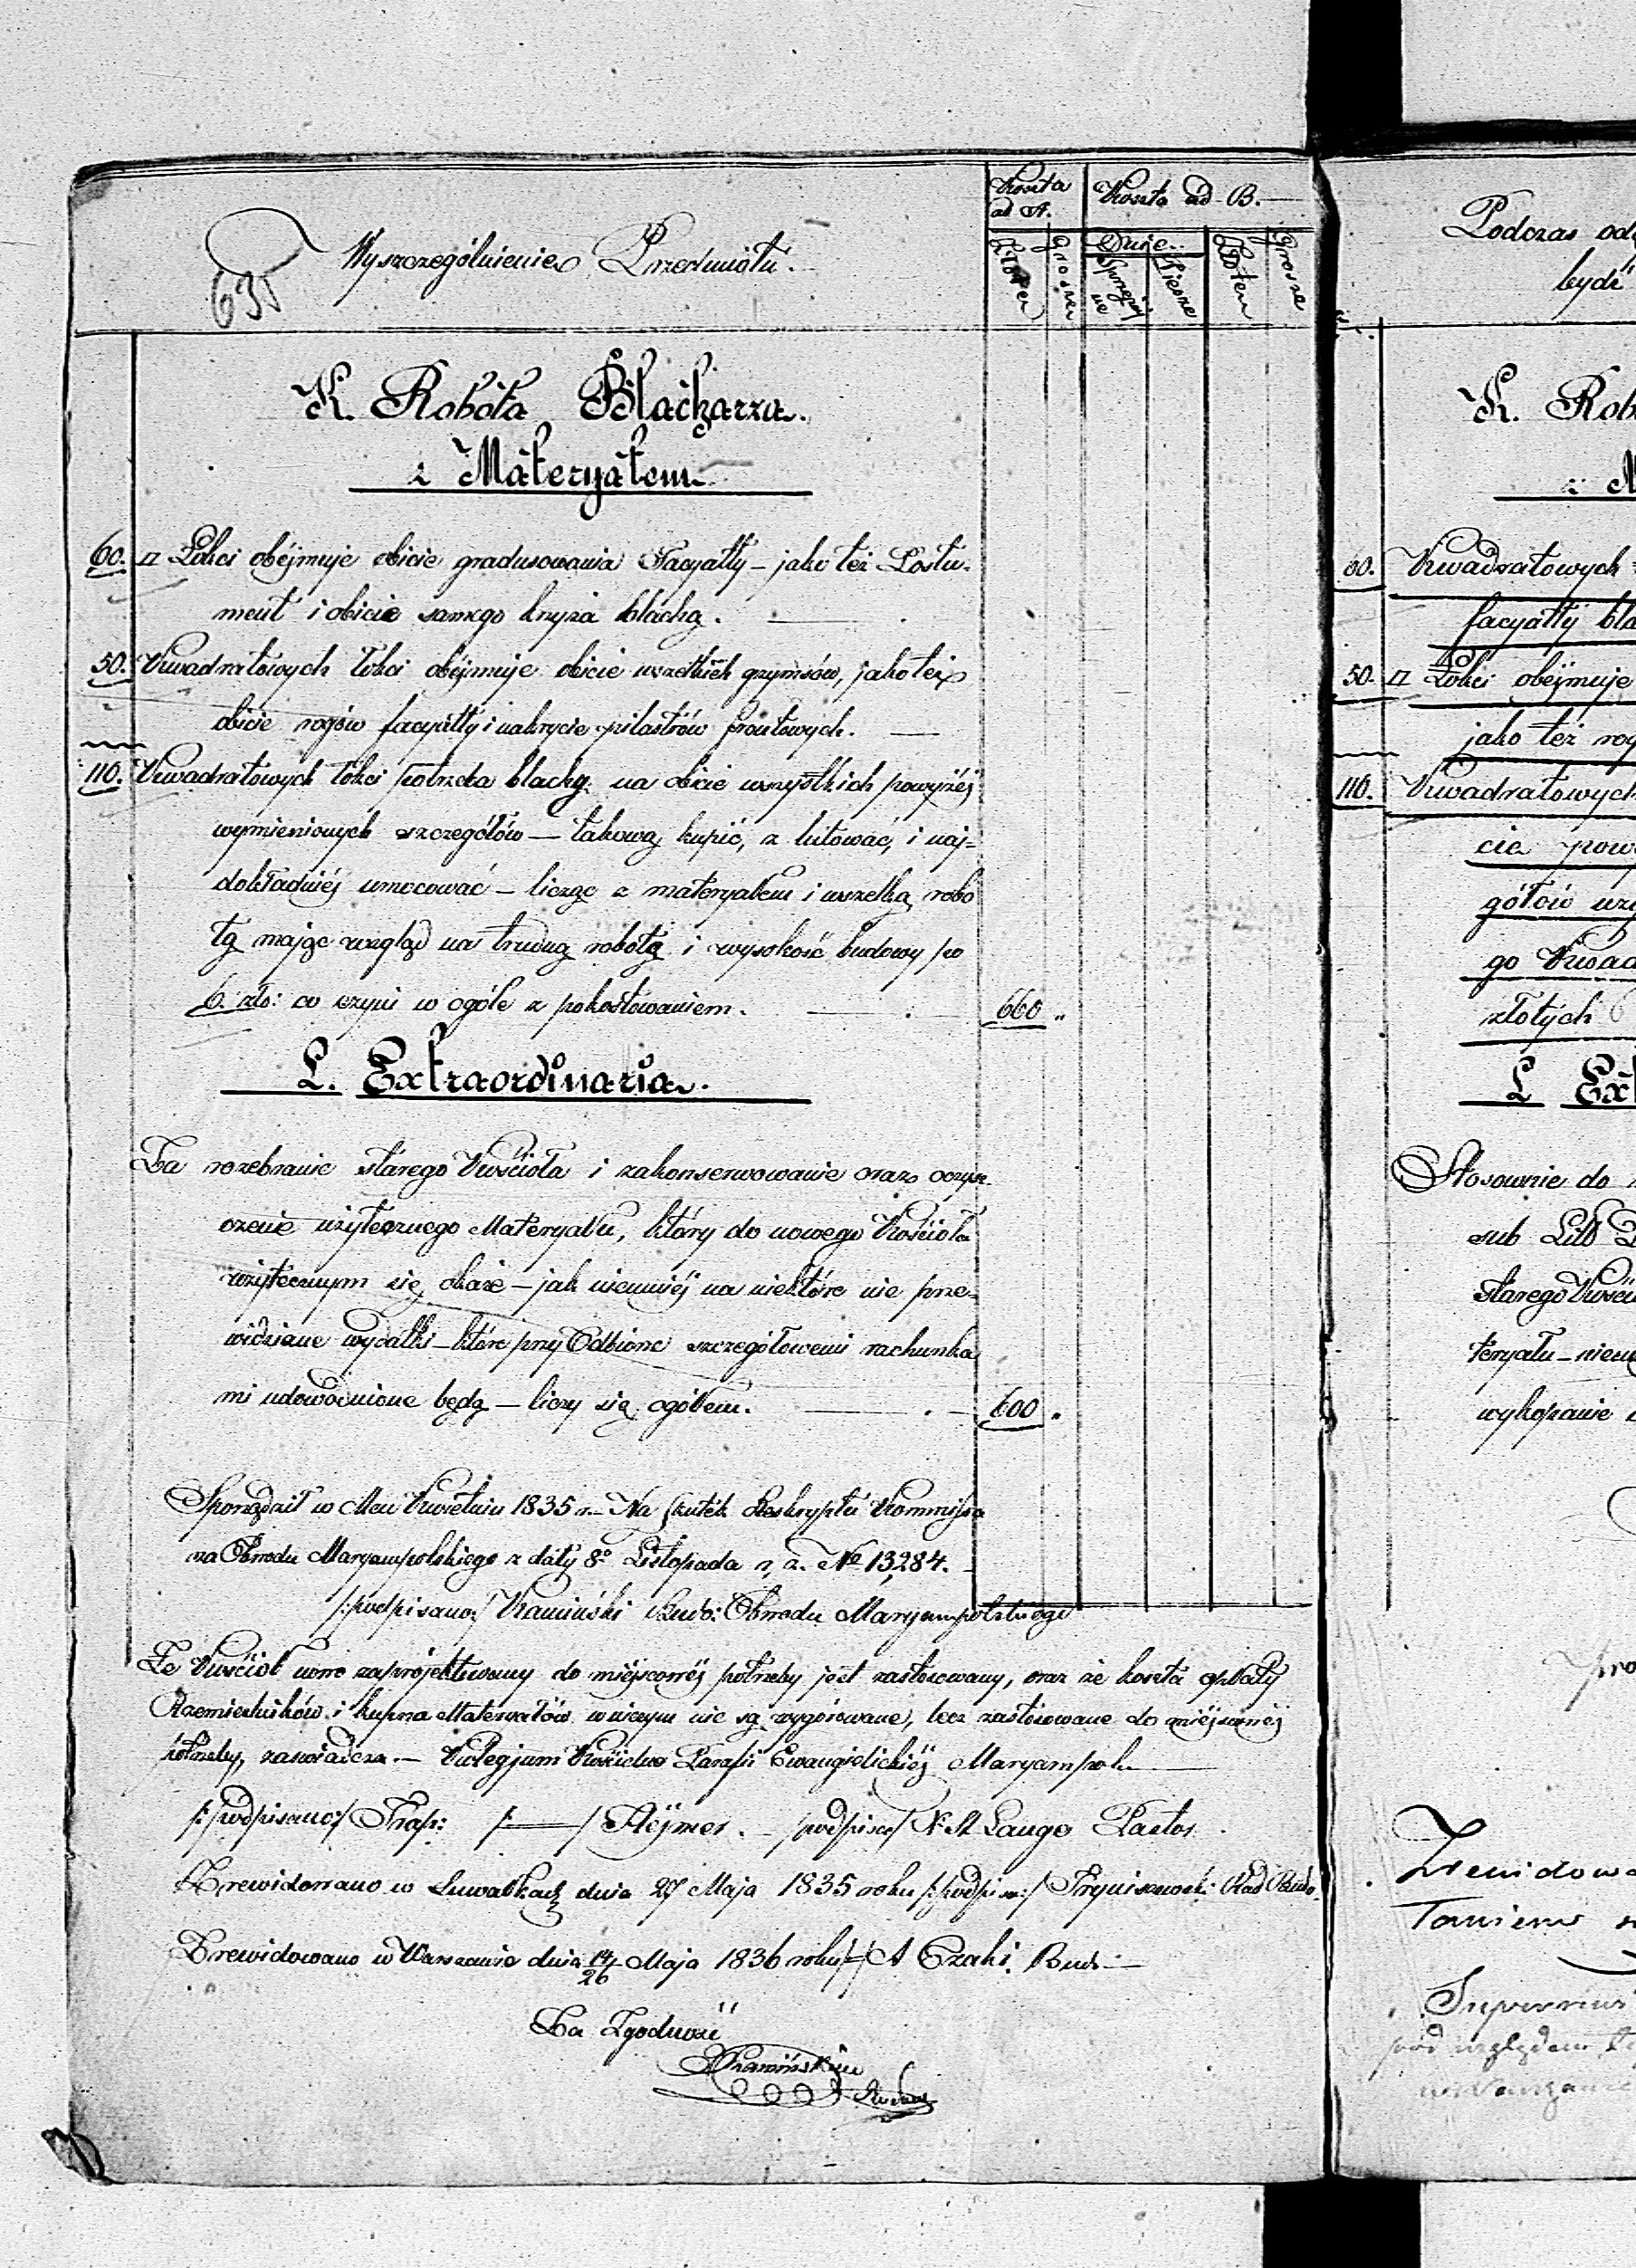 635
Wyszczególnienie Przedmiotu.
Koszta ad A.
Koszta ad B.
Złoten
Groszen
Dnie
Sprzężajne
Piesze
Złoten
Grosze
K. Robota Blacharza.
z Materyałem
60. □ Łokci obéjmuje obicie gradusowania Facyatty – jako też Postu-
ment i obicie samego krzyża blachą.
50. Kwadratowych łokci obéjmuje obicie wszelkich gzymsów, jako też
obicie rogów facyatty i nakrycie pilastrów frontowych.
110. Kwadratowych łokci potrzeba blachy na obicie wszystkich powyżéj
wymienionych szczegółów – takową kupić, zlutować, i naj-
dokładniéj umocować – licząc z materyałem i wszelką robo
tą mając wzgląd na trudną robotę i wysokość budowy po
6. złto: co czyni w ogóle z pokostowaniem. 660 „
L. Extraordinaria.
Za rozebranie starego Kościoła i zakonserwowanie oraz oczysz-
czenie użytecznego Materyału, który do nowego Kościoła
użytecznym się okaże – jak niemniéj na niektóre nie prze-
widziane wydatki – które przy Odbiorze szczegółowemi rachunka
mi udowodnione będą – liczy się ogółem. 600 „
Sporządził w Mcu Kwietniu 1835 r. – Na skutek Reskryptu Kommissa
rza Obwodu Maryampolskiego z daty 8º Listopada r. z. Nº 13,284.
/:podpisano:/ Kamiński Budo: Obwodu Maryampolskiego
Że Kościół nowo zaprojektowany do miéjscowéj potrzeby jest zastosowany, oraz że koszta opłaty
Rzemieślników i kupna Materyałów w niczym nie są wygórowane, lecz zastosowane do miéjscowéj
potrzeby, zaświadcza. – Kolegjum Kościelne Parafii Ewangielickiéj Maryampola
/:podpisano:/ Trap: /: – / Heÿmer. – /podpisa/ Lange Pastor.
Zrewidowano w Suwałkach dnia 27 Maja 1835 roku /:podpisa:/ Rad Budo.
Zrewidowano w Warszawie dnia 14/26 Maja 1836 roku /–/ A Czaki. Bud: –
Za Zgodność
Kamiński
Podczas od
bydź
K. Rob
z M
60. Kwadratowych
facyatty bla
50. □ Łokci obéjmuje
jako też rog
110. Kwadratowych
cie powy
gółów uży
go Kwad
złotych 6
L Ext
Stosownie do
sub Litt
starego Kości
teryału – niem
wykopanie
pro
Zrewidowa
Taniem
pod względem
w Warszawie